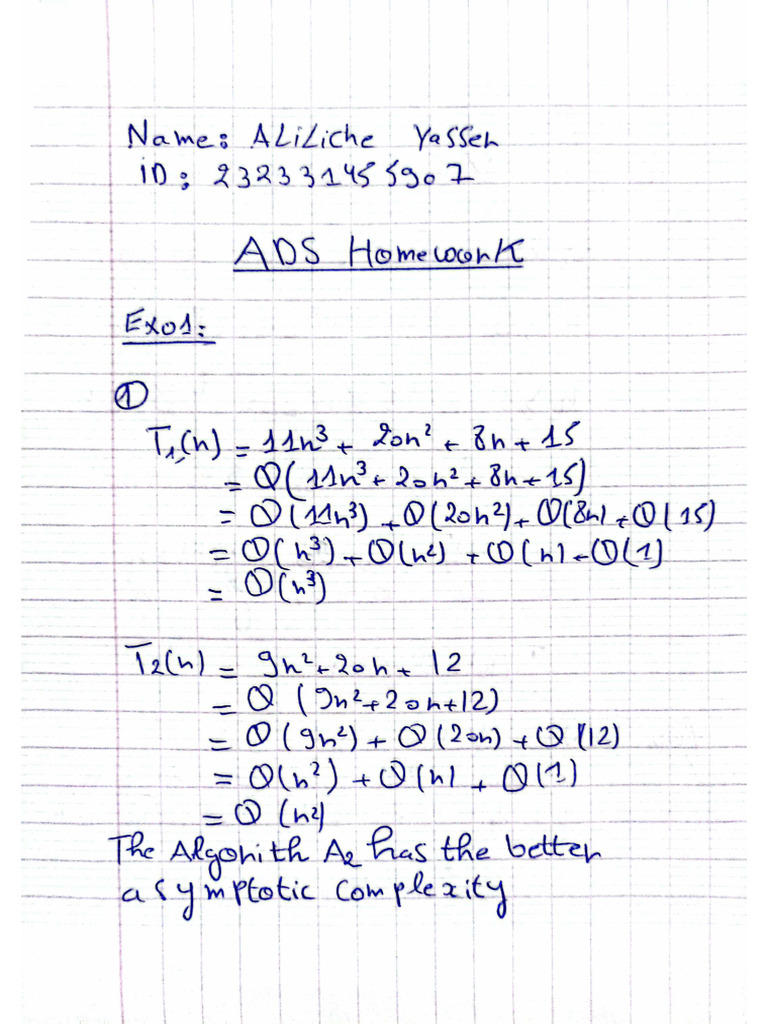 Name: ALiLiche Yassen
iD: 232331455907
ADS Homework
Exo1:
①
T₁(n) = 11n³ + 20n² + 8n + 15
= O(11n³ + 20n² + 8n + 15)
= O(11n³) + O(20n²) + O(8n) + O(15)
= O(n³) + O(n²) + O(n) + O(1)
= O(n³)
T₂(n) = 9n² + 20n + 12
= O(9n² + 20n + 12)
= O(9n²) + O(20n) + O(12)
= O(n²) + O(n) + O(1)
= O(n²)
The Algorith A₂ has the better
asymptotic complexity